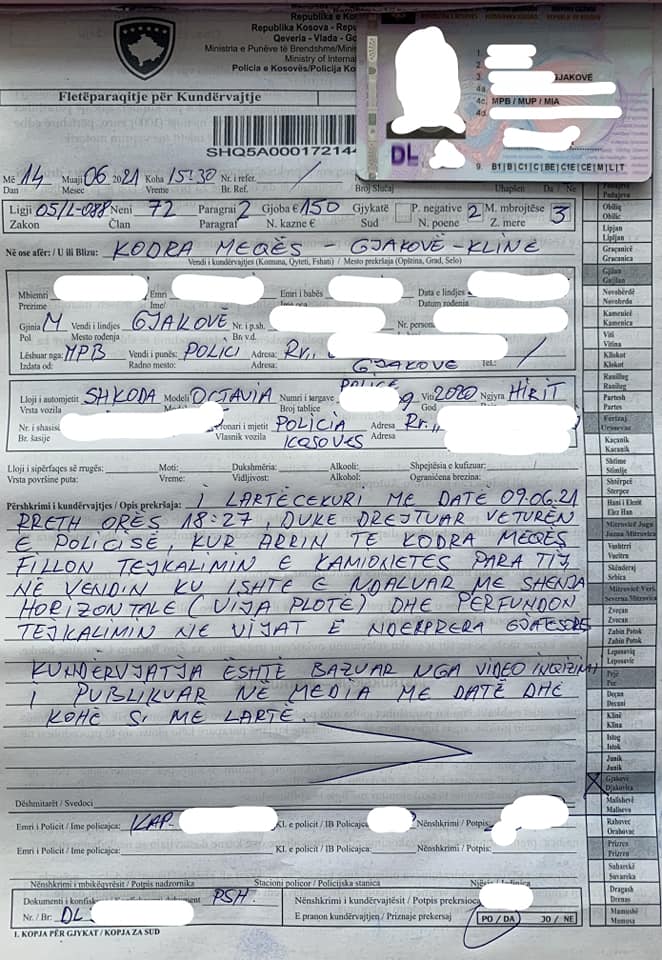 Republika e Kos
Republika Kosova - Rep
Qeveria - Vlada - Go
Ministria e Punëve të Brendshme/Mini
Ministry of Intern
Policia e Kosovës/Policija Ko
REPUBLIKA E KOSOVËS
1.
2.
3. GJAKOVË
4a.
4c. MPB / MUP / MIA
4d.
DL
9. B1 B C1 C BE C1E CE M L T
Fletëparaqitje për Kundërvajtje
SHQ5A000172144
Më 14 Muaji 06 2021 Koha 15:30 Nr. i refer. /
Dan Mesec Vreme Br. Ref. Broj Slučaj Uhapšen Da / Ne
Ligji 05/L-088 Neni 72 Paragrafi 2 Gjoba € 150 Gjykatë P. negative 2 M. mbrojtëse 3
Zakon Član Paragraf N. kazne € Sud N. poene Z. mere
Në ose afër: / U ili Blizu: KODRA MEQËS - GJAKOVË - KLINË
Vendi i kundërvajtjes (Komuna, Qyteti, Fshati) / Mesto prekršaja (Opština, Grad, Selo)
Mbiemri Emri Emri i babës Data e lindjes
Prezime Ime Datum rođenja
Gjinia M Vendi i lindjes GJAKOVË Nr. i p.sh. Nr. person
Pol Mesto rođenja Bn v.d.
Lëshuar nga: MPB Vendi i punës: POLICI Adresa: Rr., Tel.: /
Izdata od: Radno mesto: Adresa: GJAKOVË
POLICE
Lloji i automjetit SHKODA Modeli OCTAVIA Numri i targave Viti 2020 Ngjyra HIRIT
Vrsta vozila Broj tablice God
Nr. i shasisë Pronari i mjetit POLICIA Adresa Rr.,
Br. šasije Vlasnik vozila KOSOVES Adresa
Lloji i sipërfaqes së rrugës: Moti: Dukshmëria: Alkooli: Shpejtësia e kufizuar:
Vrsta površine puta: Vreme: Vidljivost: Alkohol: Ograničena brzina:
Përshkrimi i kundërvajtjes / Opis prekršaja: I LARTËCEKURI ME DATË 09.06.21
RRETH ORËS 18:27, DUKE DREJTUAR VETURËN
E POLICISË, KUR ARRIN TE KODRA MEQËS
FILLON TEJKALIMIN E KAMIONETES PARA TIJ
NË VENDIN KU ISHTE E NDALUAR ME SHENJA
HORIZONTALE (VIJA PLOTË) DHE PËRFUNDON
TEJKALIMIN NE VIJAT E NDERPRERA GJATËSORE
KUNDËRVJATJA ËSHTË BAZUAR NGA VIDEO INQIZIMI
I PUBLIKUAR NË MEDIA ME DATË DHE
KOHË SI MË LARTË.
Dëshmitarët / Svedoci
Emri i Policit / Ime policajca: KAP. Kl. e policit / IB Policajca: Nënshkrimi / Potpis:
Emri i Policit / Ime policajca: Kl. e policit / IB Policajca: Nënshkrimi / Potpis:
Nënshkrimi i mbikëqyrësit / Potpis nadzornika Stacioni policor / Policijska stanica
Dokumenti i konfisk PSH Nënshkrimi i kundërvajtësit / Potpis prekršioca
Nr. / Br: DL E pranon kundërvajtjen / Priznaje prekersaj PO / DA JO / NE
1. KOPJA PËR GJYKAT / KOPJA ZA SUD
Podujeva
Obiliq
Obilić
Lipjan
Lipljan
Graçanicë
Gracanica
Gjilan
Gnjilane
Novobërdë
Novobrdo
Kamenicë
Kamenica
Viti
Vitina
Kllokot
Klokot
Ranillug
Ranilug
Partesh
Partes
Ferizaj
Urosevac
Kaçanik
Kacanik
Shtime
Stimlje
Shtërpcë
Sterpce
Hani i Elezit
Elez Han
Mitrovicë Jugu
Juzna Mitrovica
Vushtrri
Vucitrn
Skënderaj
Srbica
Mitrovicë Veri.
Severna Mitrovica
Zveçan
Zvecan
Zubin Potok
Zubin Potok
Leposaviq
Leposavic
Pejë
Pec
Deçan
Decani
Klinë
Klina
Istog
Istok
Junik
Junik
Gjakovë
Djakovica
Malishevë
Malisevo
Rahovec
Orahovac
Prizren
Prizren
Suharekë
Suvareka
Dragash
Dragas
Mamushë
Mamusa